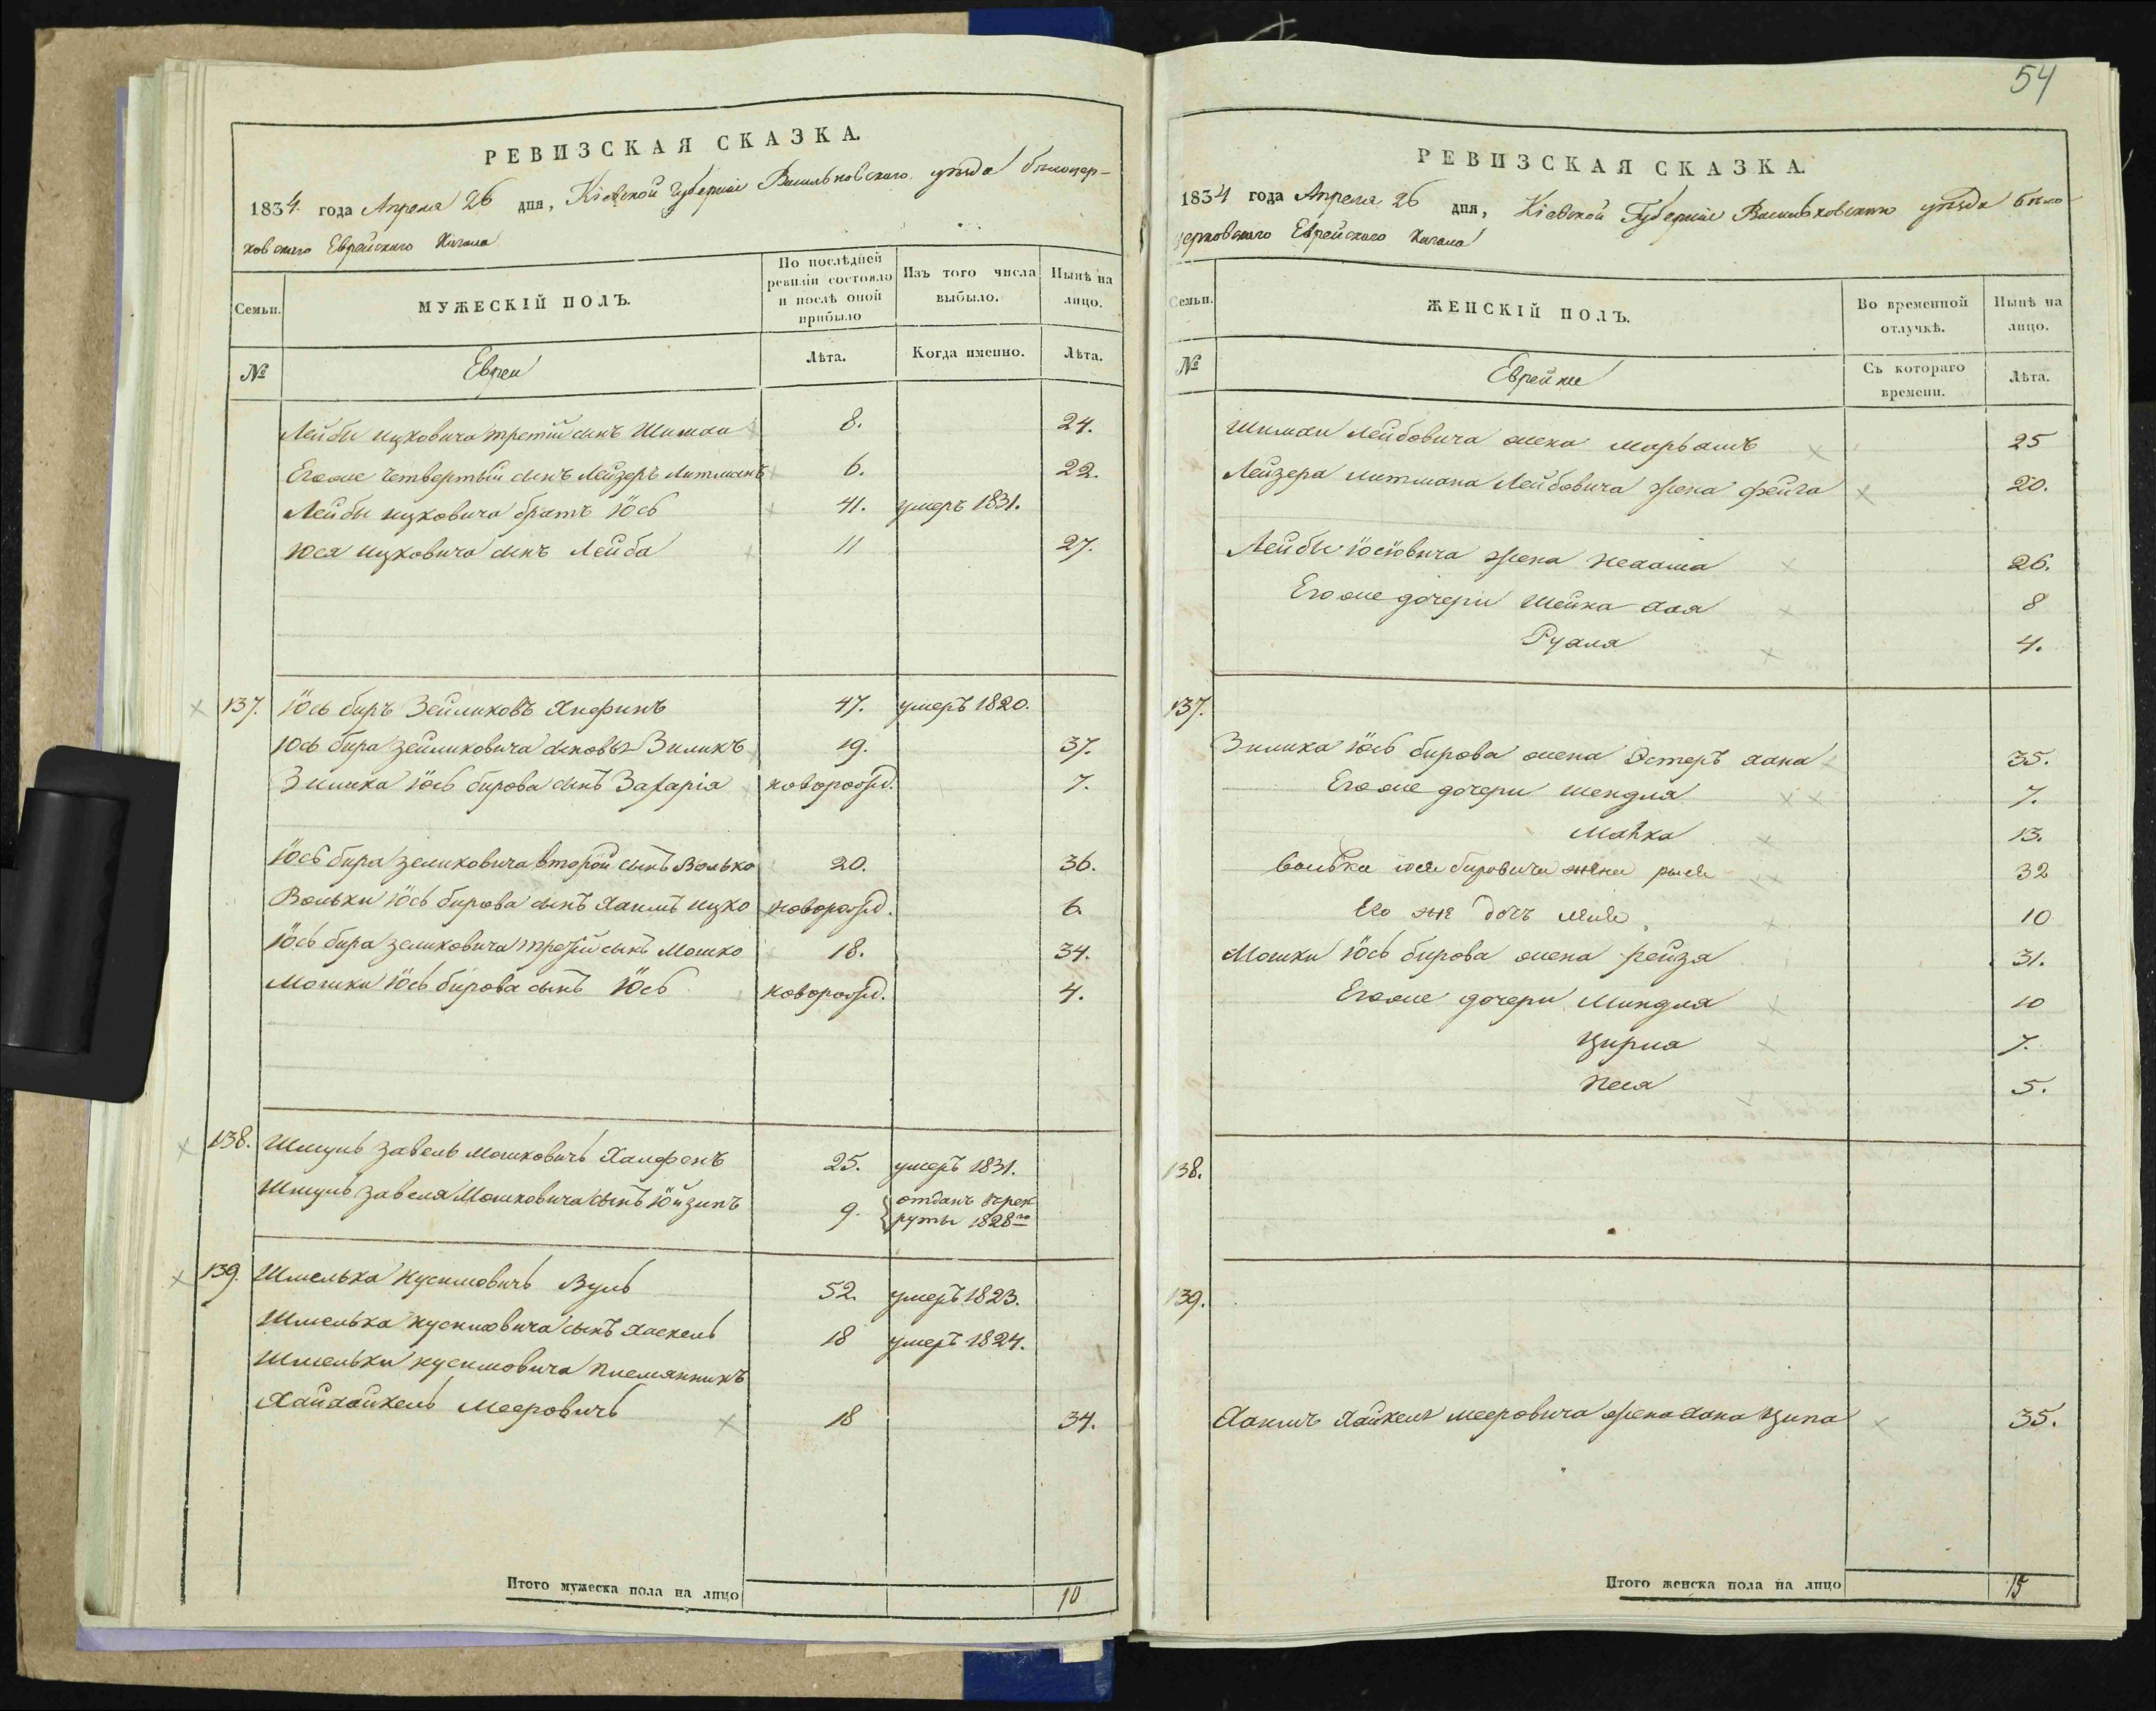 РЕВИЗСКАЯ СКАЗКА.
1834 года Апреля 26 дня, Кіевской Губерніи Васильковского уѣзда бѣлоцер-
ковского Еврейского Кагала
Семьи.
МУЖЕСКІЙ ПОЛЪ.
По послѣдней ревизіи состояло и послѣ оной прибыло
Изъ того числа выбыло.
Нынѣ на лицо.
№
Евреи
Лѣта.
Когда именно.
Лѣта.
Лейбы ицковича третій сынъ Шимха 8. 24.
Егоже четвертый сынъ Лейзеръ Литманъ 6. 22.
Лейбы ицковича братъ Іось 41. умеръ 1831.
Іося ицковича сынъ Лейба 11 27.
137. Іось биръ Зейликовъ 47. умеръ 1820.
Іось бира зейликовича сыновья Зиликъ 19. 37.
Зилика Іось бирова сынъ Захарія новорожд. 7.
Іось бира зеликовича второй сынъ Волько 20. 36.
Вольки Іось бирова сынъ Хаимъ ицко новорожд. 6.
Іось бира зеликовича третій сынъ Мошко 18. 34.
Мошки Іось бирова сынъ Іось новорожд. 4.
138. Шмуль завель Мошковичъ Халфенъ 25. умеръ 1831.
Шмуль завеля Мошковича сынъ Іойзипъ 9. отданъ въ рек
руты 1828го
139. Шмелька нусимовичъ Вуль 52. умеръ 1823.
Шмелька нусимовича сынъ Хаскель 18 умеръ 1824.
Шмельки нусимовича племянникъ
Мееровичъ 18 34.
Итого мужеска пола на лицо 10
54
РЕВИЗСКАЯ СКАЗКА.
1834 года Апреля 26 дня, Кіевской Губерніи Васильковского уѣзда бѣло
церковского Еврейского Кагала
Семьи.
ЖЕНСКІЙ ПОЛЪ.
Во временной отлучкѣ.
Нынѣ на лицо.
№
Еврейки
Съ котораго времени.
Лѣта.
Шимхи Лейбовича жена Марьямъ 25
Лейзера литмана Лейбовича жена фейга 20.
Лейбы іосіовича жена 26.
Егоже дочери Шейна хая 8
Рухля 4.
137.
Зилика Іось бирова жена Эстеръ хана 35.
Егоже дочери шендля 7.
Малка 13.
Вольки іося бировича жена рыся 32
Его же дочь 10
Мошки Іось бирова жена рейза 31.
Егоже дочери Миндля 10
Цирля 7.
Песя 5.
138.
139.
Хаимъ Хайкеля мееровича жена хана ципа 35.
Итого женска пола на лицо 15